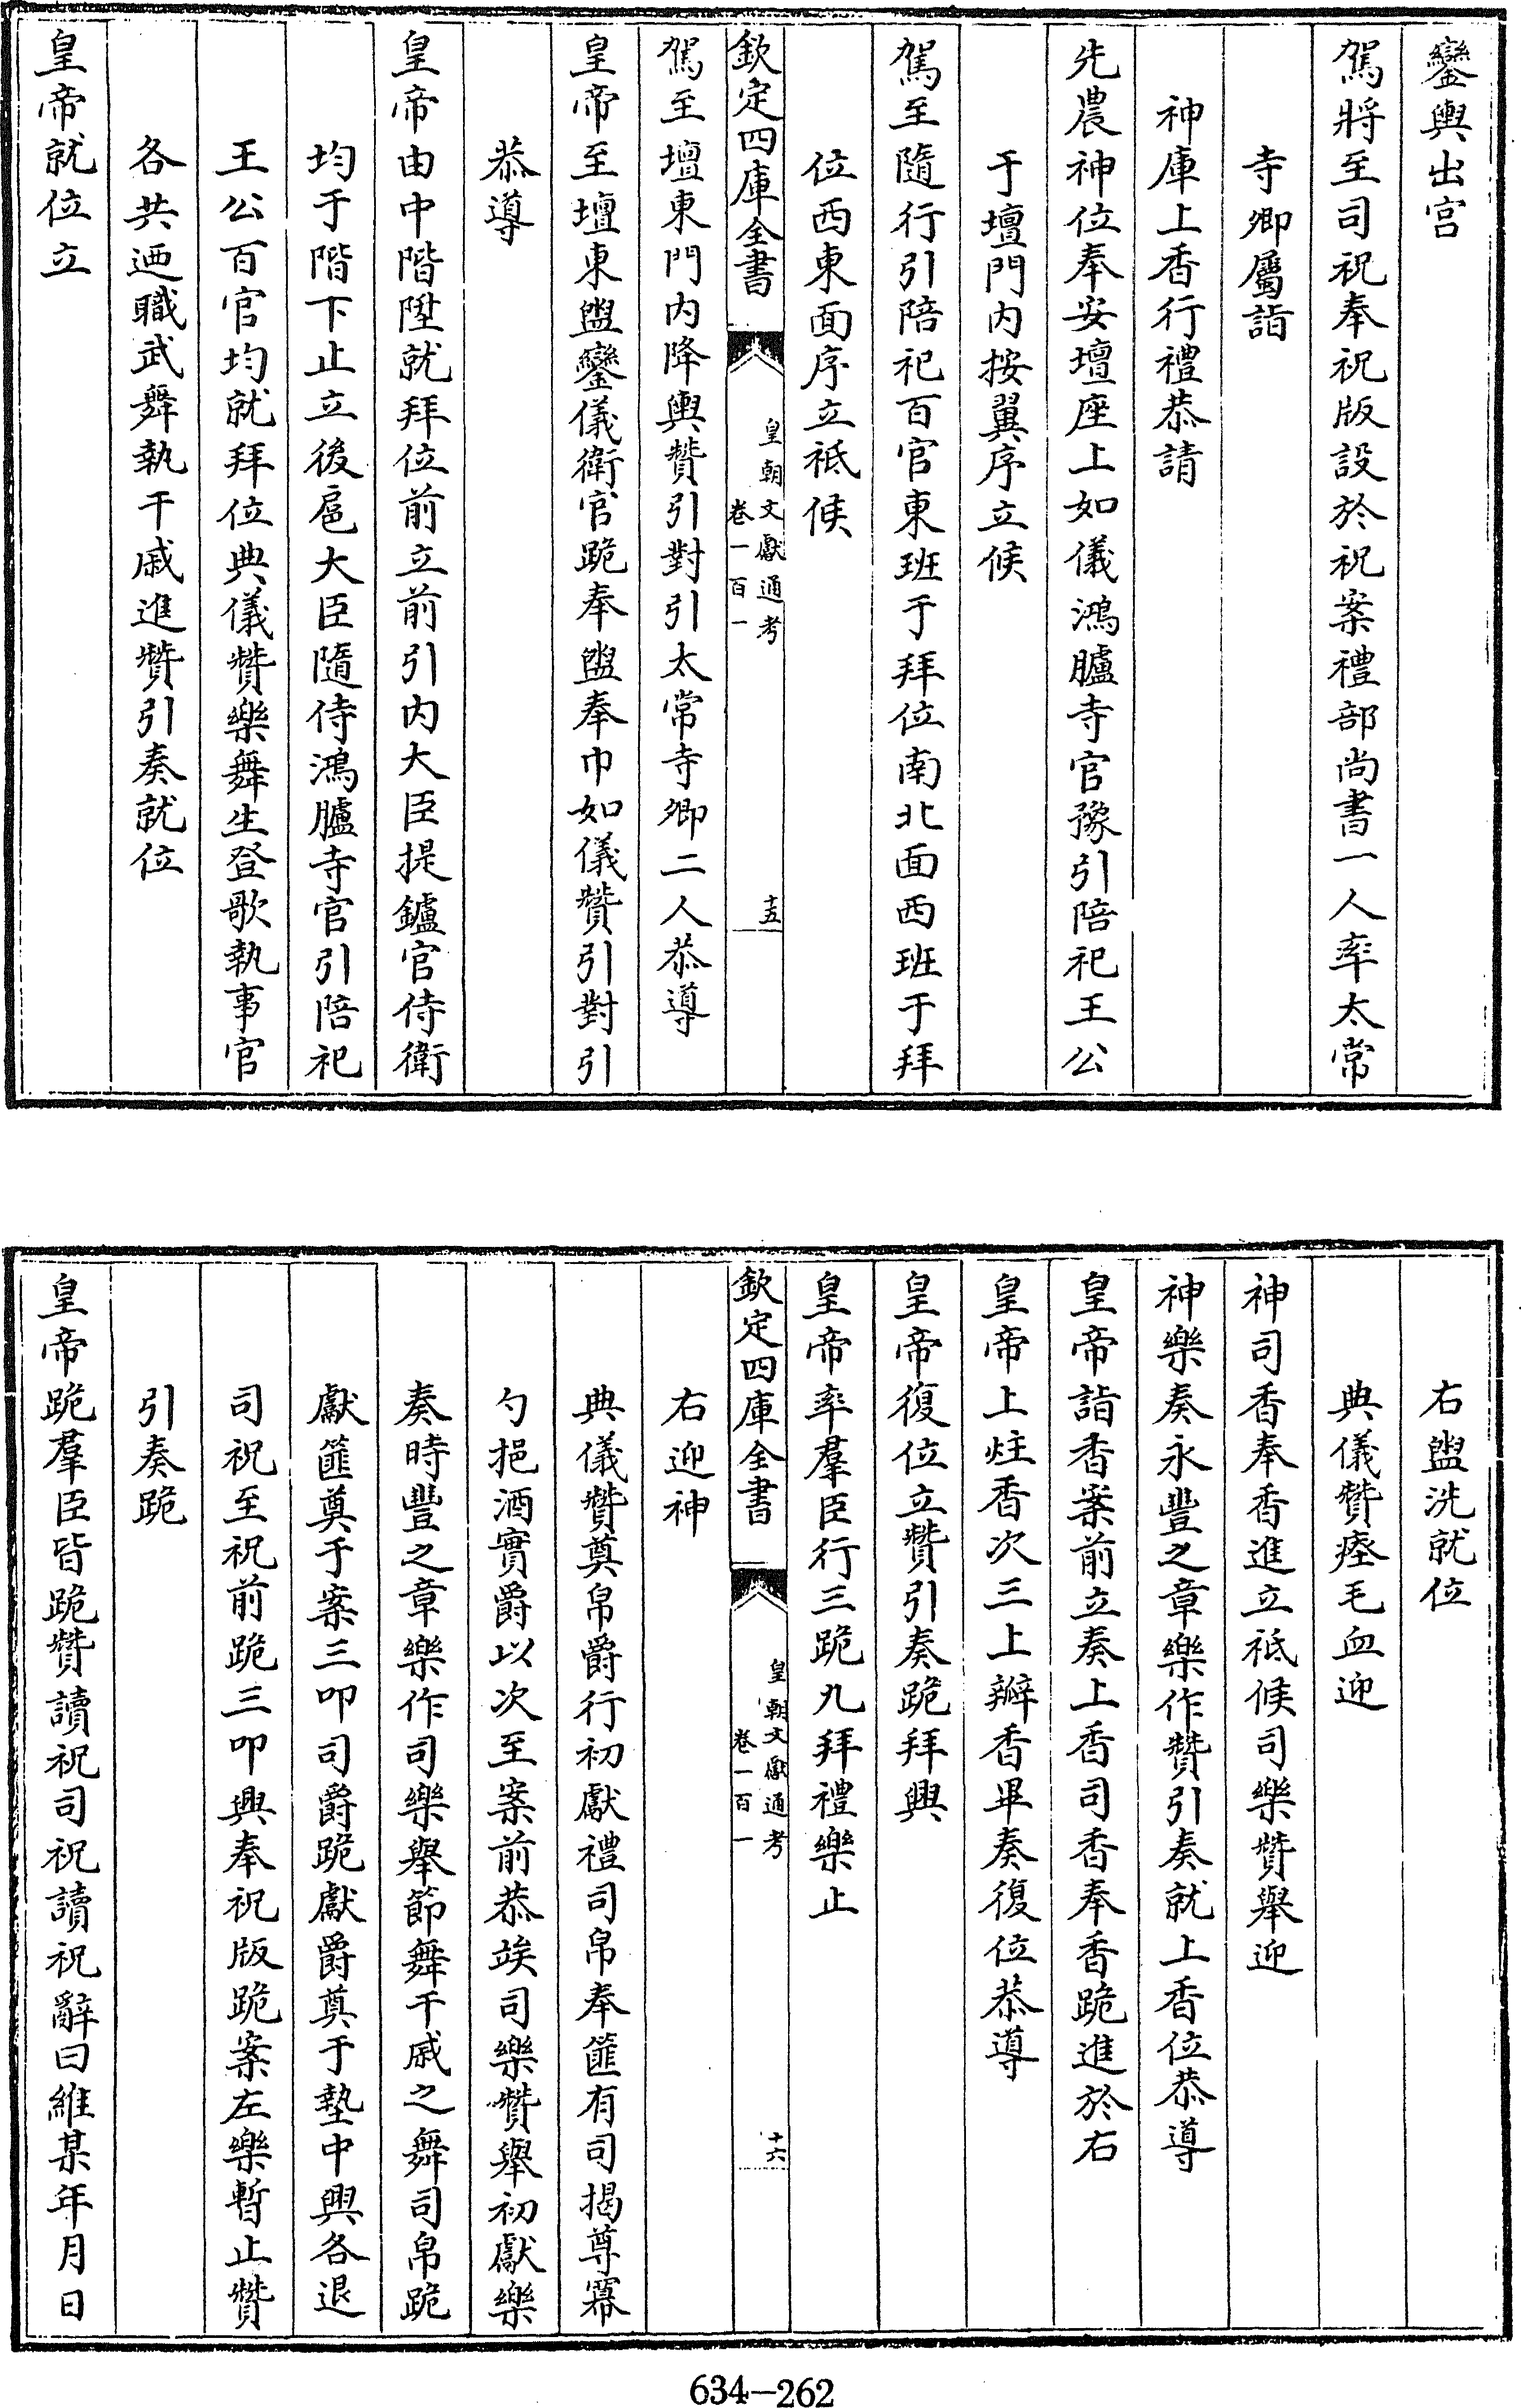 鑾輿出宫
駕將至司祝奉祝版設於祝案禮部尚書一人率太常
寺卿屬詣
神庫上香行禮恭請
先農神位奉安壇座上如儀鴻臚寺官豫引陪祀王公
于壇門内按翼序立候
駕至隨行引陪祀百官東班于拜位南北面西班于拜
位西東面序立祗候
欽定四庫全書
皇朝文獻通考
卷一百一
十五
駕至壇東門内降輿贊引對引太常寺卿二人恭導
皇帝至壇東盥鑾儀衛官跪奉盥奉巾如儀贊引對引
恭導
皇帝由中階陞就拜位前立前引内大臣提鑪官侍衛
均于階下止立後扈大臣隨侍鴻臚寺官引陪祀
王公百官均就拜位典儀贊樂舞生登歌執事官
各共迺職武舞執干戚進贊引奏就位
皇帝就位立
右盥洗就位
典儀贊瘞毛血迎
神司香奉香進立祗候司樂贊舉迎
神樂奏永豐之章樂作贊引奏就上香位恭導
皇帝詣香案前立奏上香司香奉香跪進於右
皇帝上炷香次三上瓣香畢奏復位恭導
皇帝復位立贊引奏跪拜興
皇帝率羣臣行三跪九拜禮樂止
欽定四庫全書
皇朝文獻通考
卷一百一
十六
右迎神
典儀贊奠帛爵行初獻禮司帛奉篚有司揭尊冪
勺挹酒實爵以次至案前恭竢司樂贊舉初獻樂
奏時豐之章樂作司樂舉節舞干戚之舞司帛跪
獻篚奠于案三叩司爵跪獻爵奠于墊中興各退
司祝至祝前跪三叩興奉祝版跪案左樂暫止贊
引奏跪
皇帝跪羣臣皆跪贊讀祝司祝讀祝辭曰維某年月日
634-262